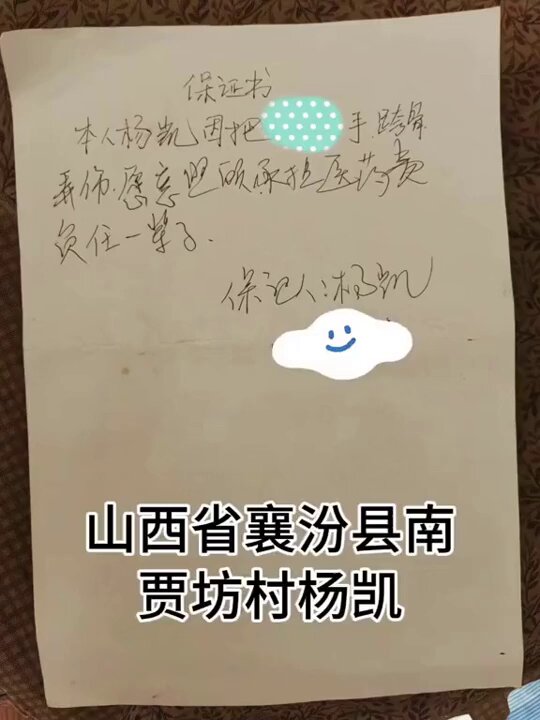 保证书
本人杨凯因把手跨骨
弄伤.愿意照顾承担医药费
负任一辈子.
保证人:杨凯
山西省襄汾县南
贾坊村杨凯